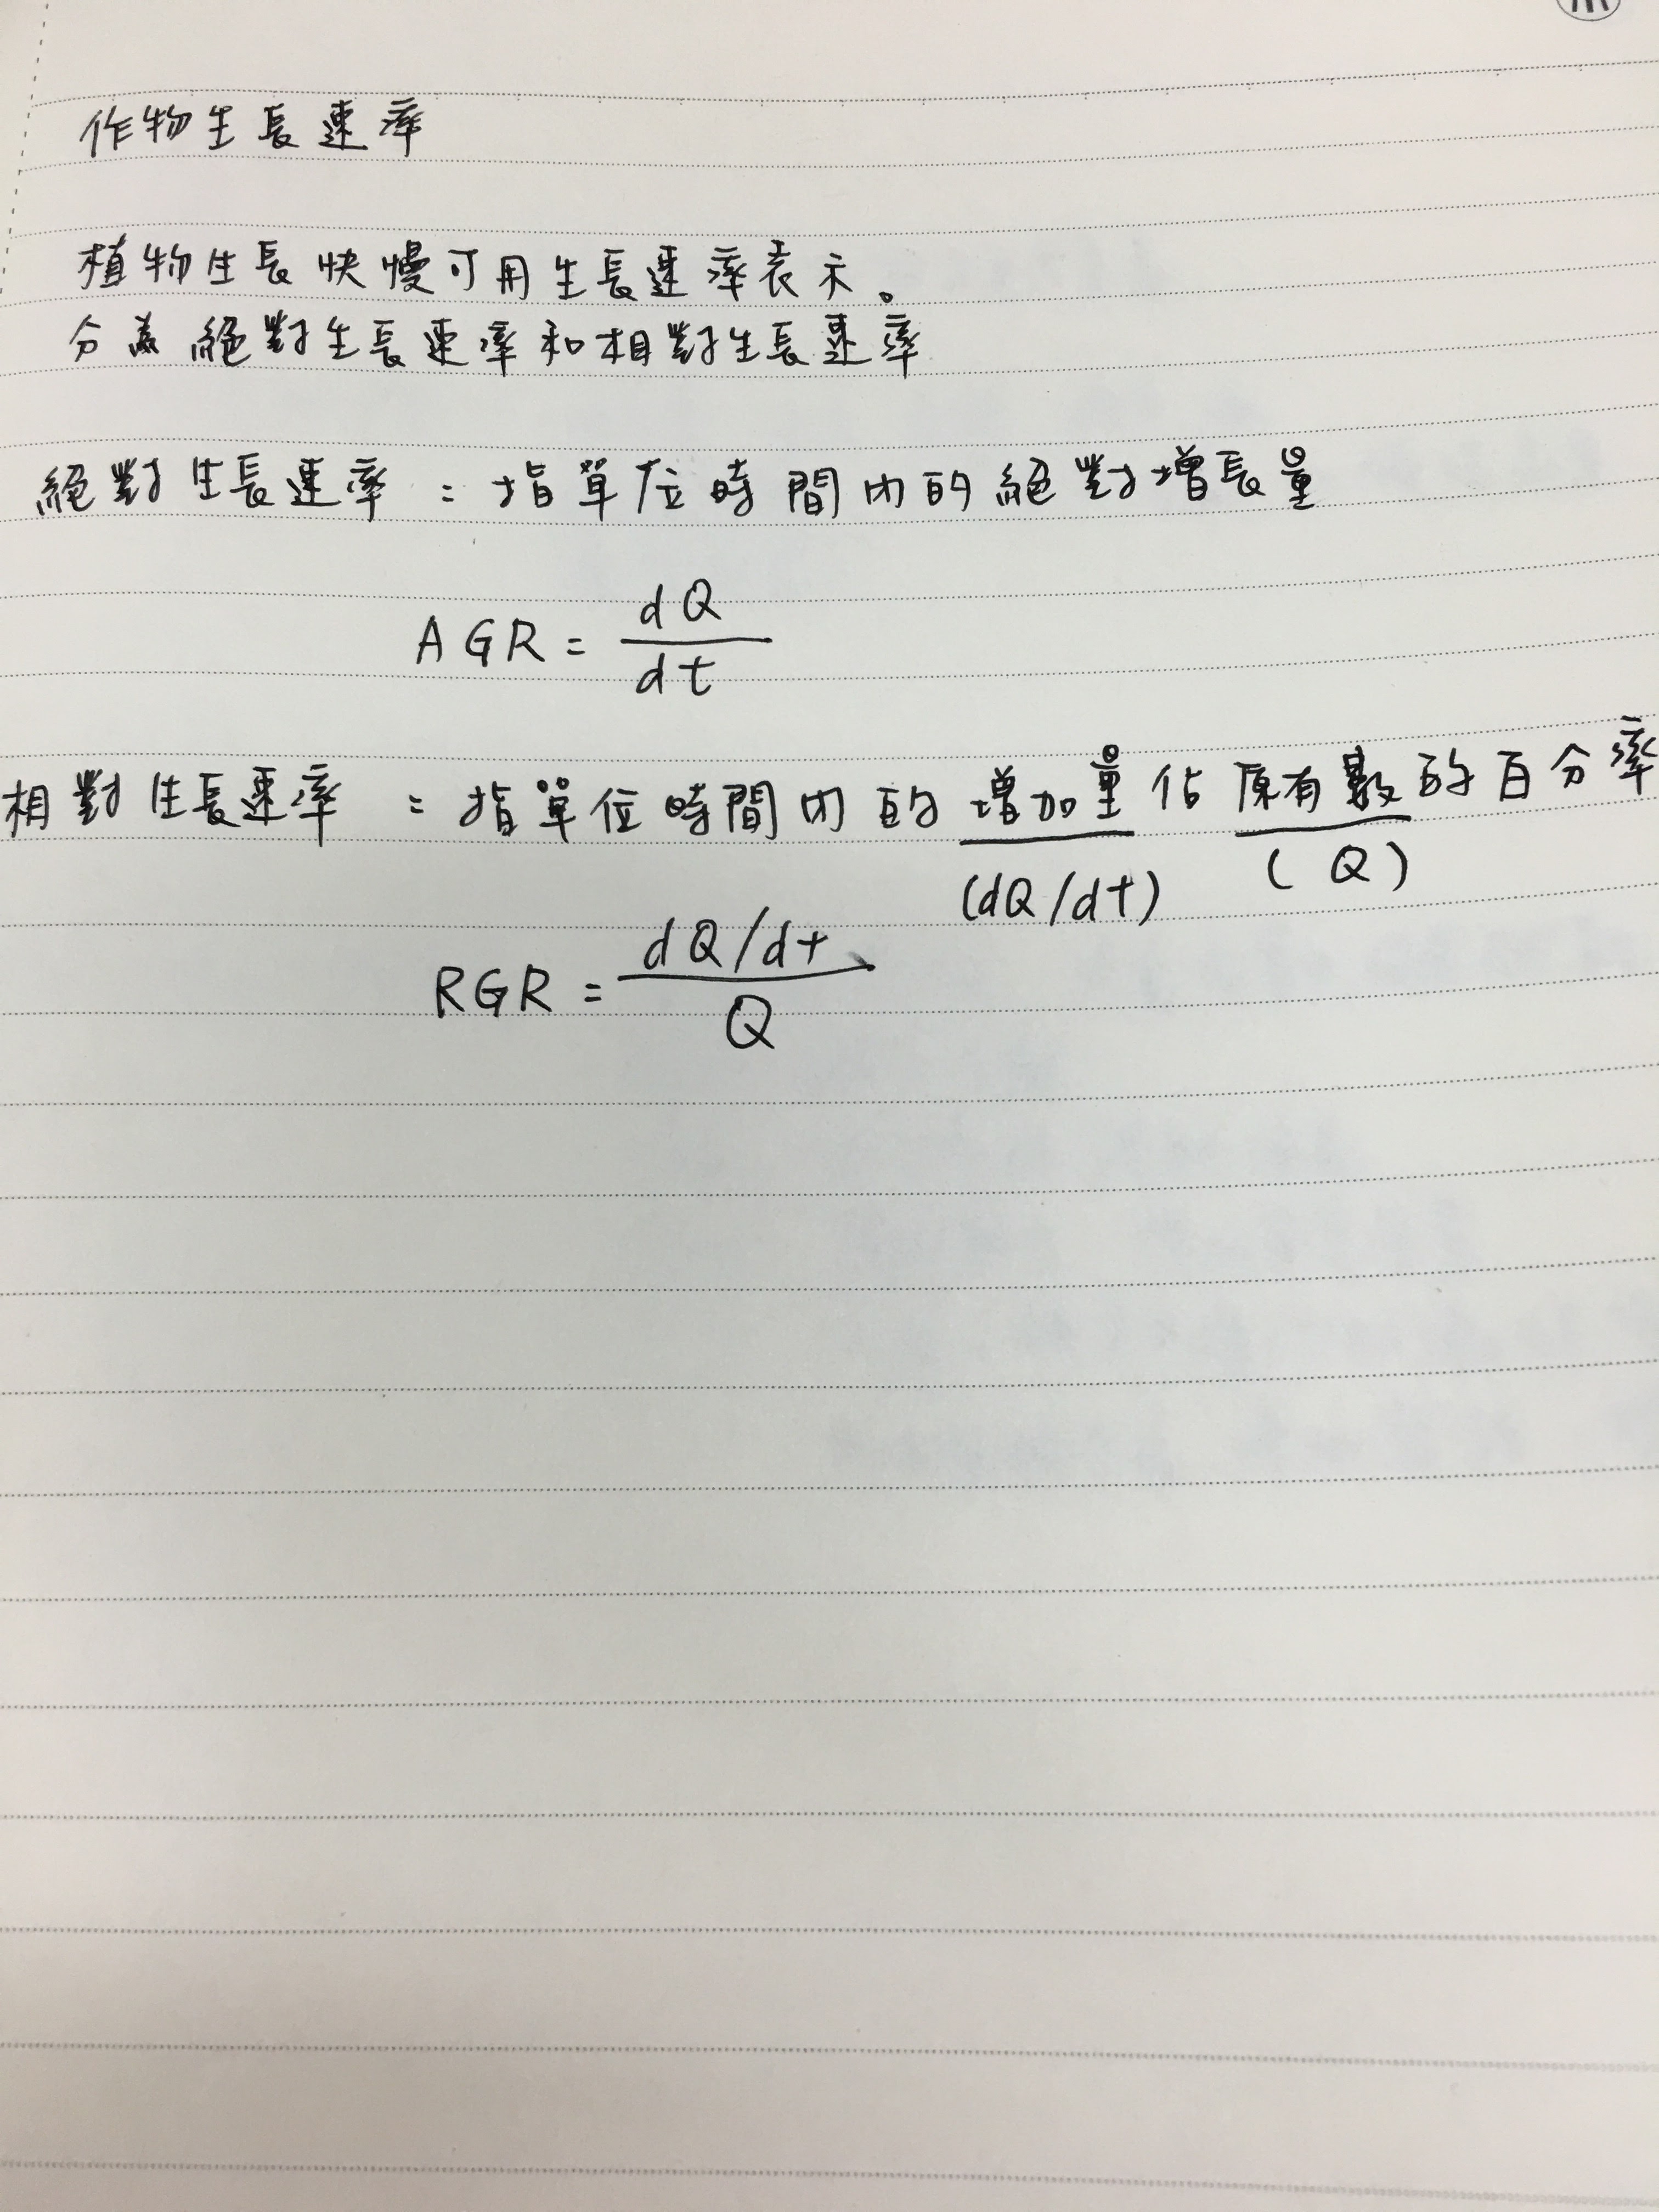 作物生長速率
植物生長快慢可用生長速率表示。
分為絕對生長速率和相對生長速率
絕對生長速率：指單位時間內的絕對增長量
AGR = dQ / dt
相對生長速率：指單位時間內的增加量佔原有數的百分率
(dQ/dt) (Q)
RGR = dQ/dt / Q